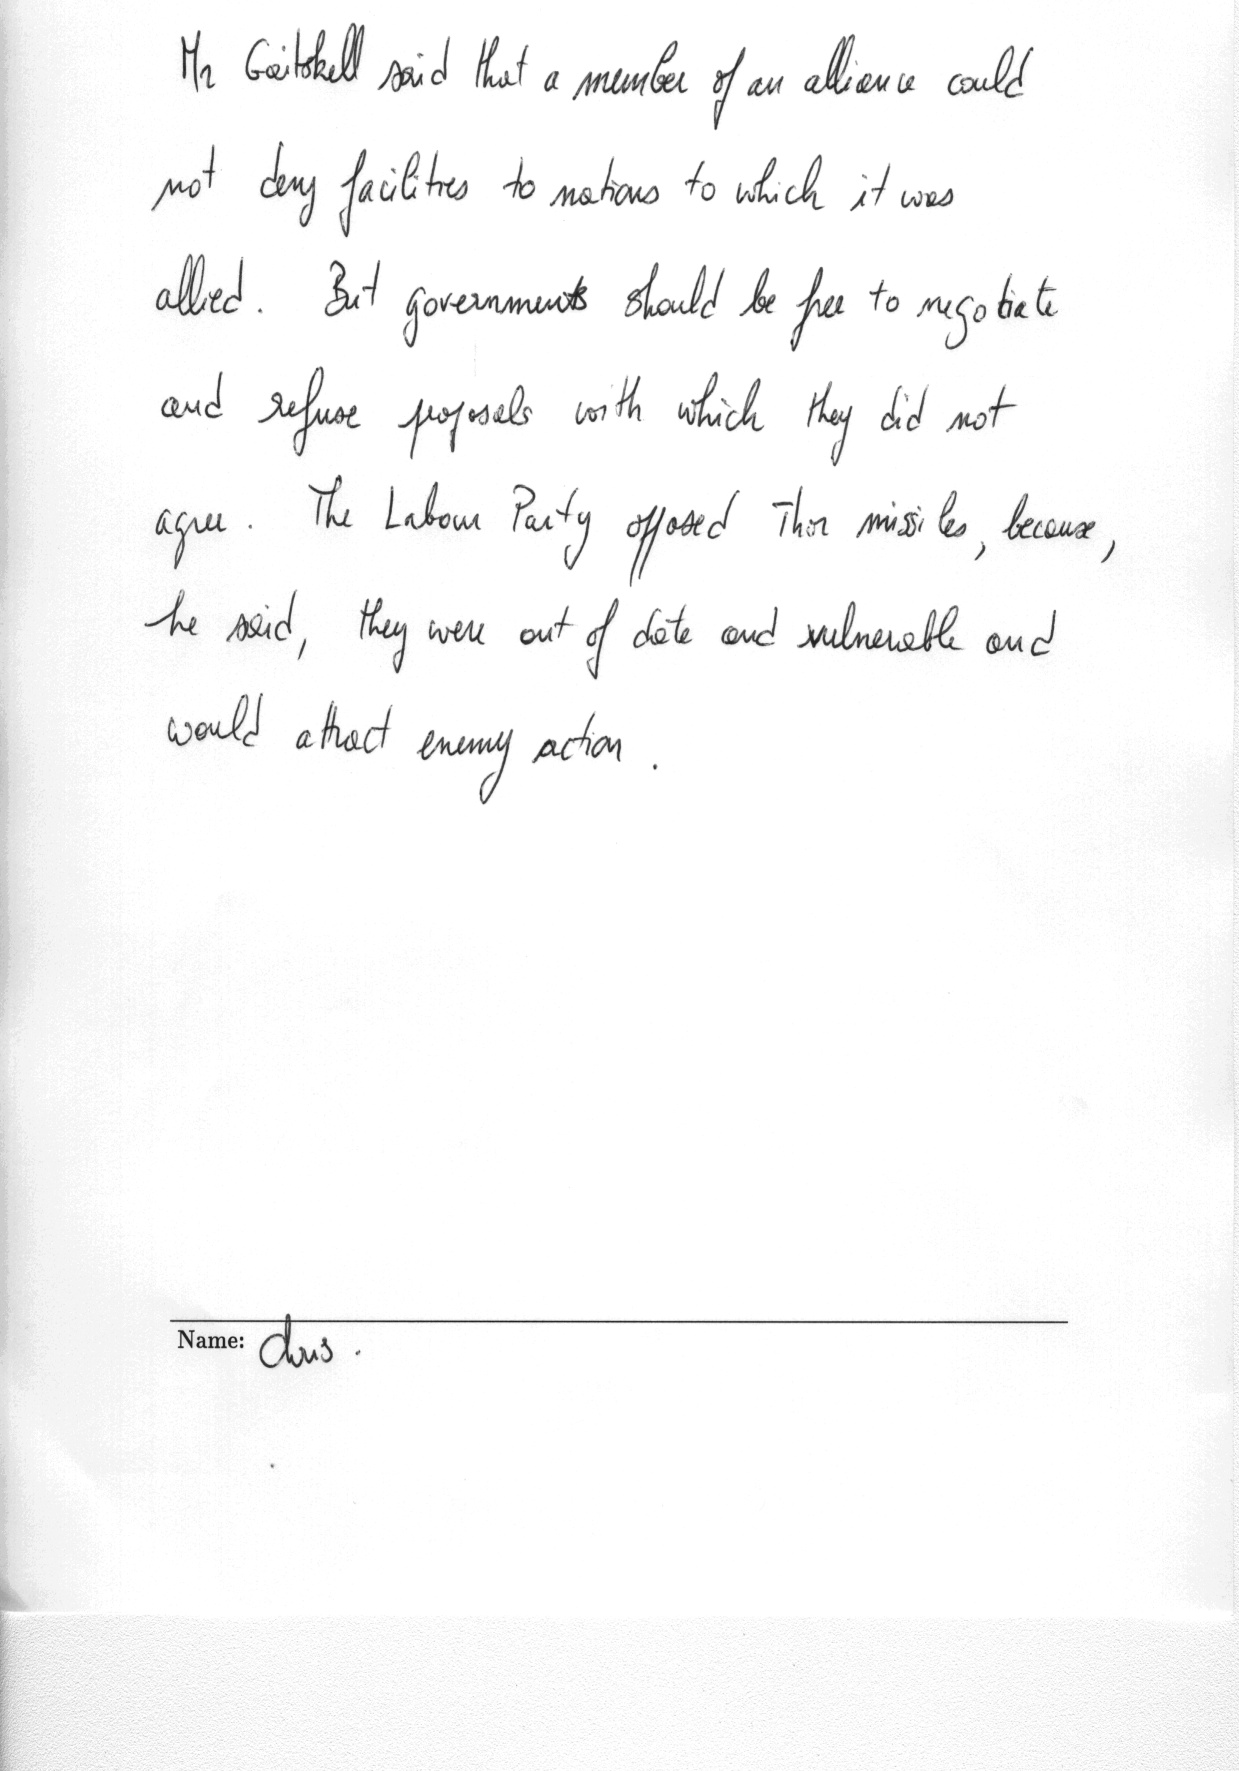 Mr Gaitskell said that a member of an alliance could
not deny facilities to nations to which it was
allied. But governments should be free to negotiate
and refuse proposals with which they did not
agree. The Labour Party opposed Thor missiles, because,
he said, they were out of date and vulnerable and
would attract enemy action.
Name: Chris.